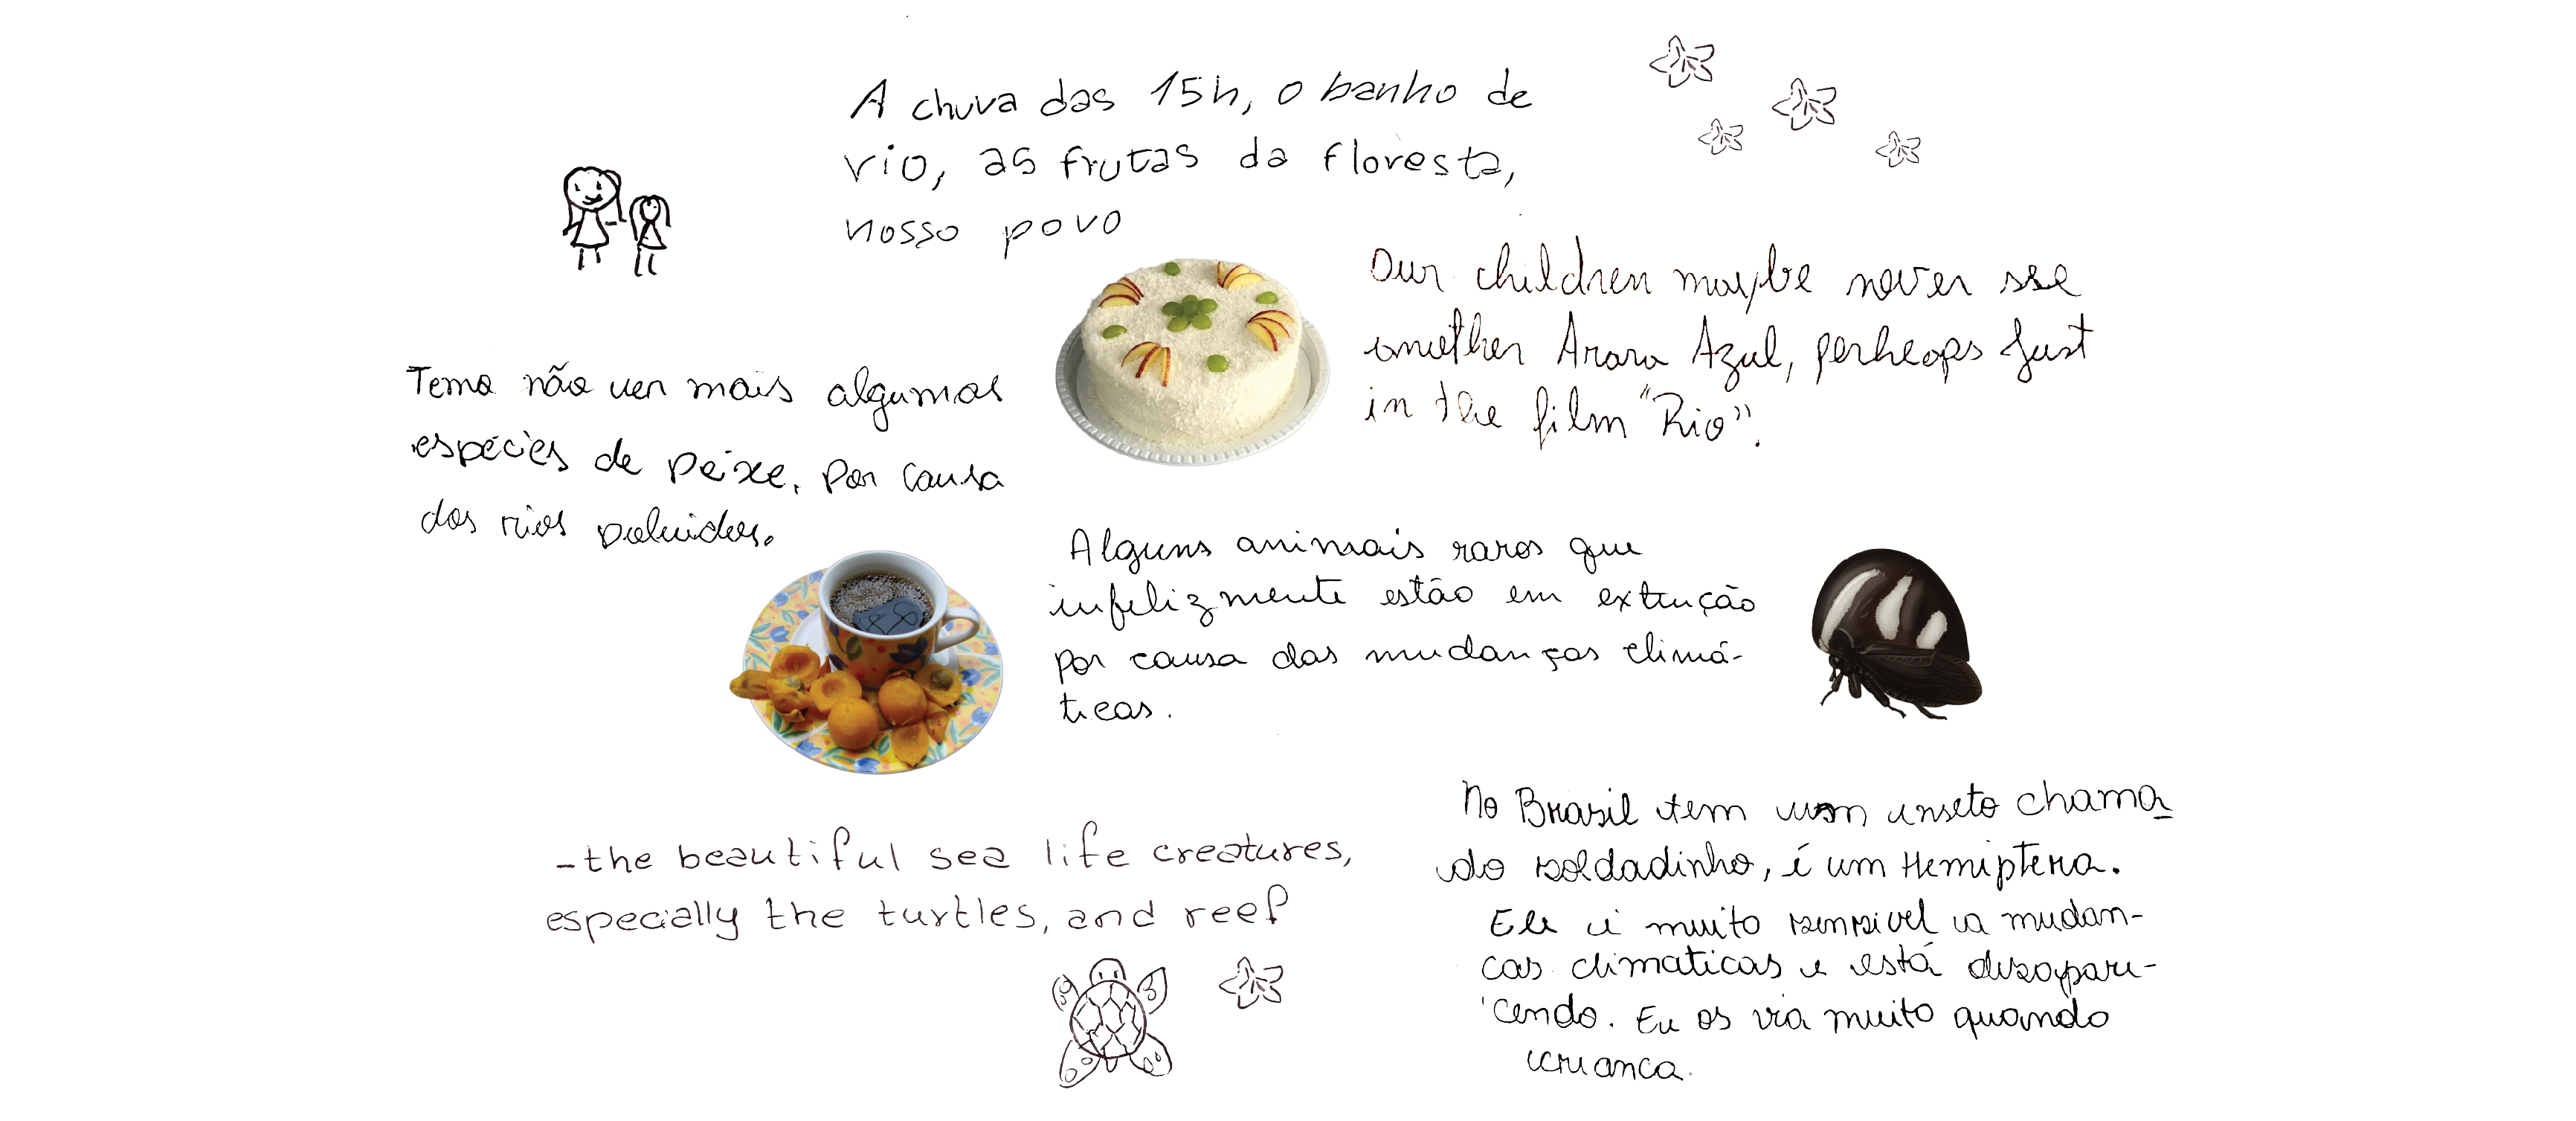 A chuva das 15h, o banho de
rio, as frutas da floresta,
nosso povo
Our children maybe never see
another Arara Azul, perheaps Just
in the film "Rio".
Temo não ver mais algumas
espécies de peixe, por causa
dos rios poluidos.
Alguns animais raros que
infelizmente estão em extinção
por causa das mudanças climá-
ticas.
-the beautiful sea life creatures,
especially the turtles, and reef
No Brasil tem um inseto chama
do soldadinho, é um Hemiptera.
Ele é muito sensivel a mudan-
cas climaticas e está desapare-
cendo. Eu os via muito quando
crianca.